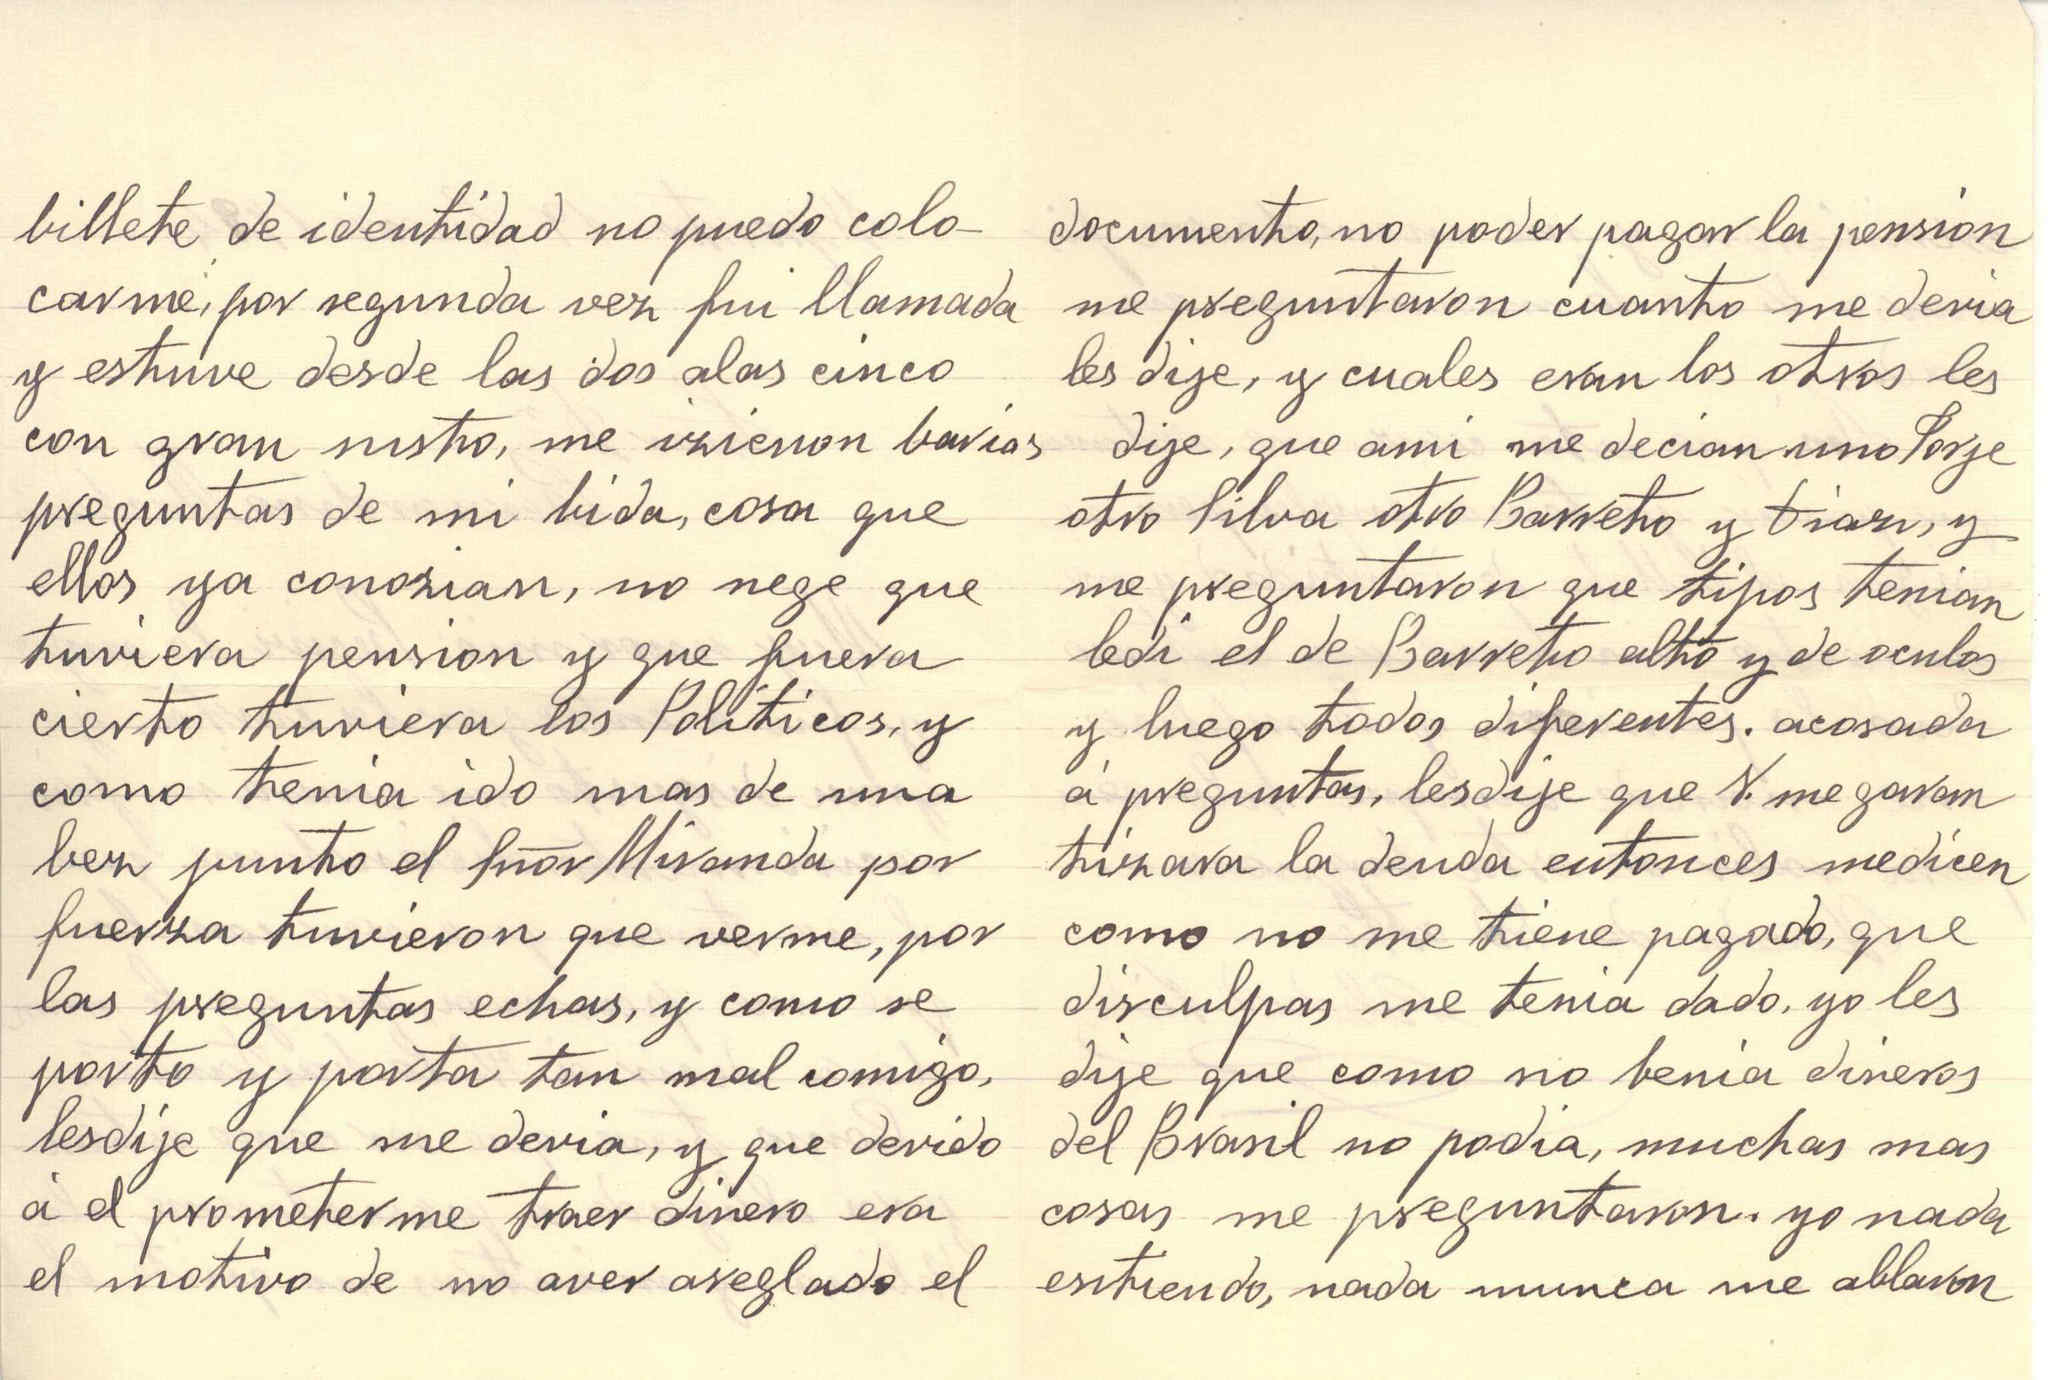 billete de identidad no puedo colo-
carme, por segunda vez fui llamada
y estuve desde las dos alas cinco
con gran susto, me izieron barias
preguntas de mi bida, cosa que
ellos ya conozian, no nege que
tuviera pension y que fuera
cierto tuviera los Politicos, y
como tenia ido mas de una
bez junto el Snõr Miranda por
fuerza tuvieron que verme, por
las preguntas echas, y como se
porto y porta tan mal comigo,
lesdije que me devia, y que devido
á el prometerme traer dinero era
el motivo de no aver areglado el
documento, no poder pagar la pension
me preguntaron cuanto me devia
les dije, y cuales eran los otros les
dije, que ami me decian uno Sorje
otro Silva otro Barreto y Diaz, y
me preguntaron que tipos tenian
ledi el de Barreto alto y de oculos
y luego todos diferentes. acosada
á preguntas, lesdije que V. me garan
tizara la deuda entonces medicen
como no me tiene pagado, que
disculpas me tenia dado, yo les
dije que como no benia dineros
del Brasil no podia, muchas mas
cosas me preguntaron. yo nada
entiendo, nada nunca me ablaron